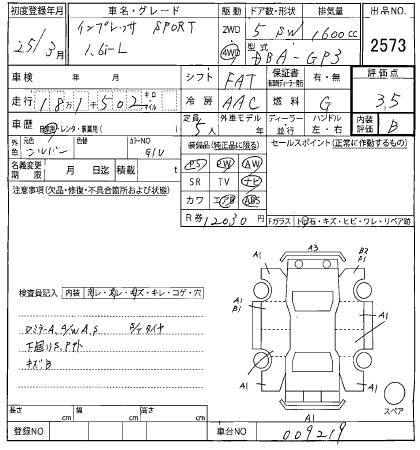 初度登録年月 車名・グレード 駆動 ドア数・形状 排気量 出品NO.
25/3月 インプレッサ SPORT 1.6i-L 2WD 4WD 5 SW 1600cc 2573
型式 DBA-GP3
車検 年 月 シフト FAT 保証書 有・無 評価点
走行 181千502 キロ マイル 冷房 AAC 燃料 G 3.5
車歴 自家用・レンタ・事業用( ) 定員 5人 外車モデル 年 ディーラー・並行 ハンドル 左・右 内装評価 B
外色 元色 シルバー 色替 カラーNO G1U 装備品(純正品に限る) セールスポイント(正常に動作するもの)
名義変更期限 月 日迄 積載 t PS PW AW
注意事項(欠品・修復・不具合箇所および状態) SR TV ナビ
カワ エアB ABS
R券 12030円 Fガラス トビ石・キズ・ヒビ・ワレ・リペア跡
A1 A3 B2 P1
検査員記入 内装 汚レ・スレ・キズ・キレ・コゲ・穴
A1 A1
Dミラー A, A/W A, S
下廻りS, Pサト
キズB
A1 A1 A1 スペア
長さ cm 幅 cm 高さ cm
登録NO 車台NO 009219